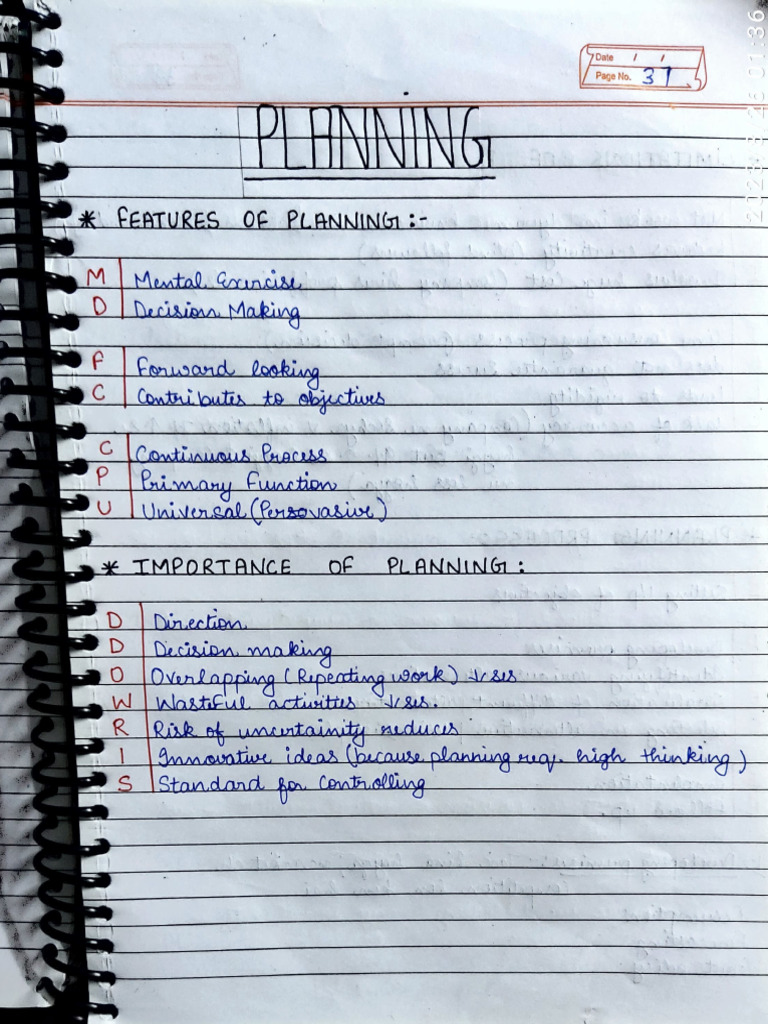 Date / /
Page No. 37
PLANNING
* FEATURES OF PLANNING :-
M Mental Exercise
D Decision Making
F Forward looking
C Contributes to objectives
C Continuous Process
P Primary Function
U Universal (Persovasive)
* IMPORTANCE OF PLANNING :
D Direction
D Decision making
O Overlapping (Repeating work) ↓ses
W Wasteful activities ↓ses.
R Risk of uncertainity reduces
I Innovative ideas (because planning req. high thinking)
S Standard for Controlling